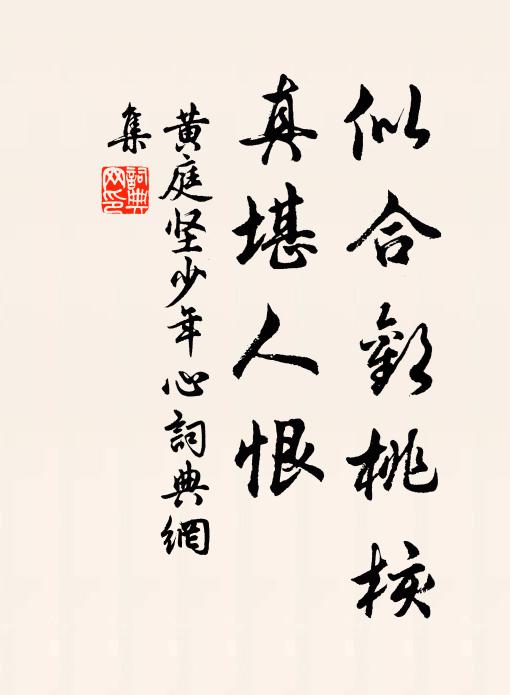 似合歡桃核
真堪人恨
黄庭坚少年心詞典網
集
詞典
网印